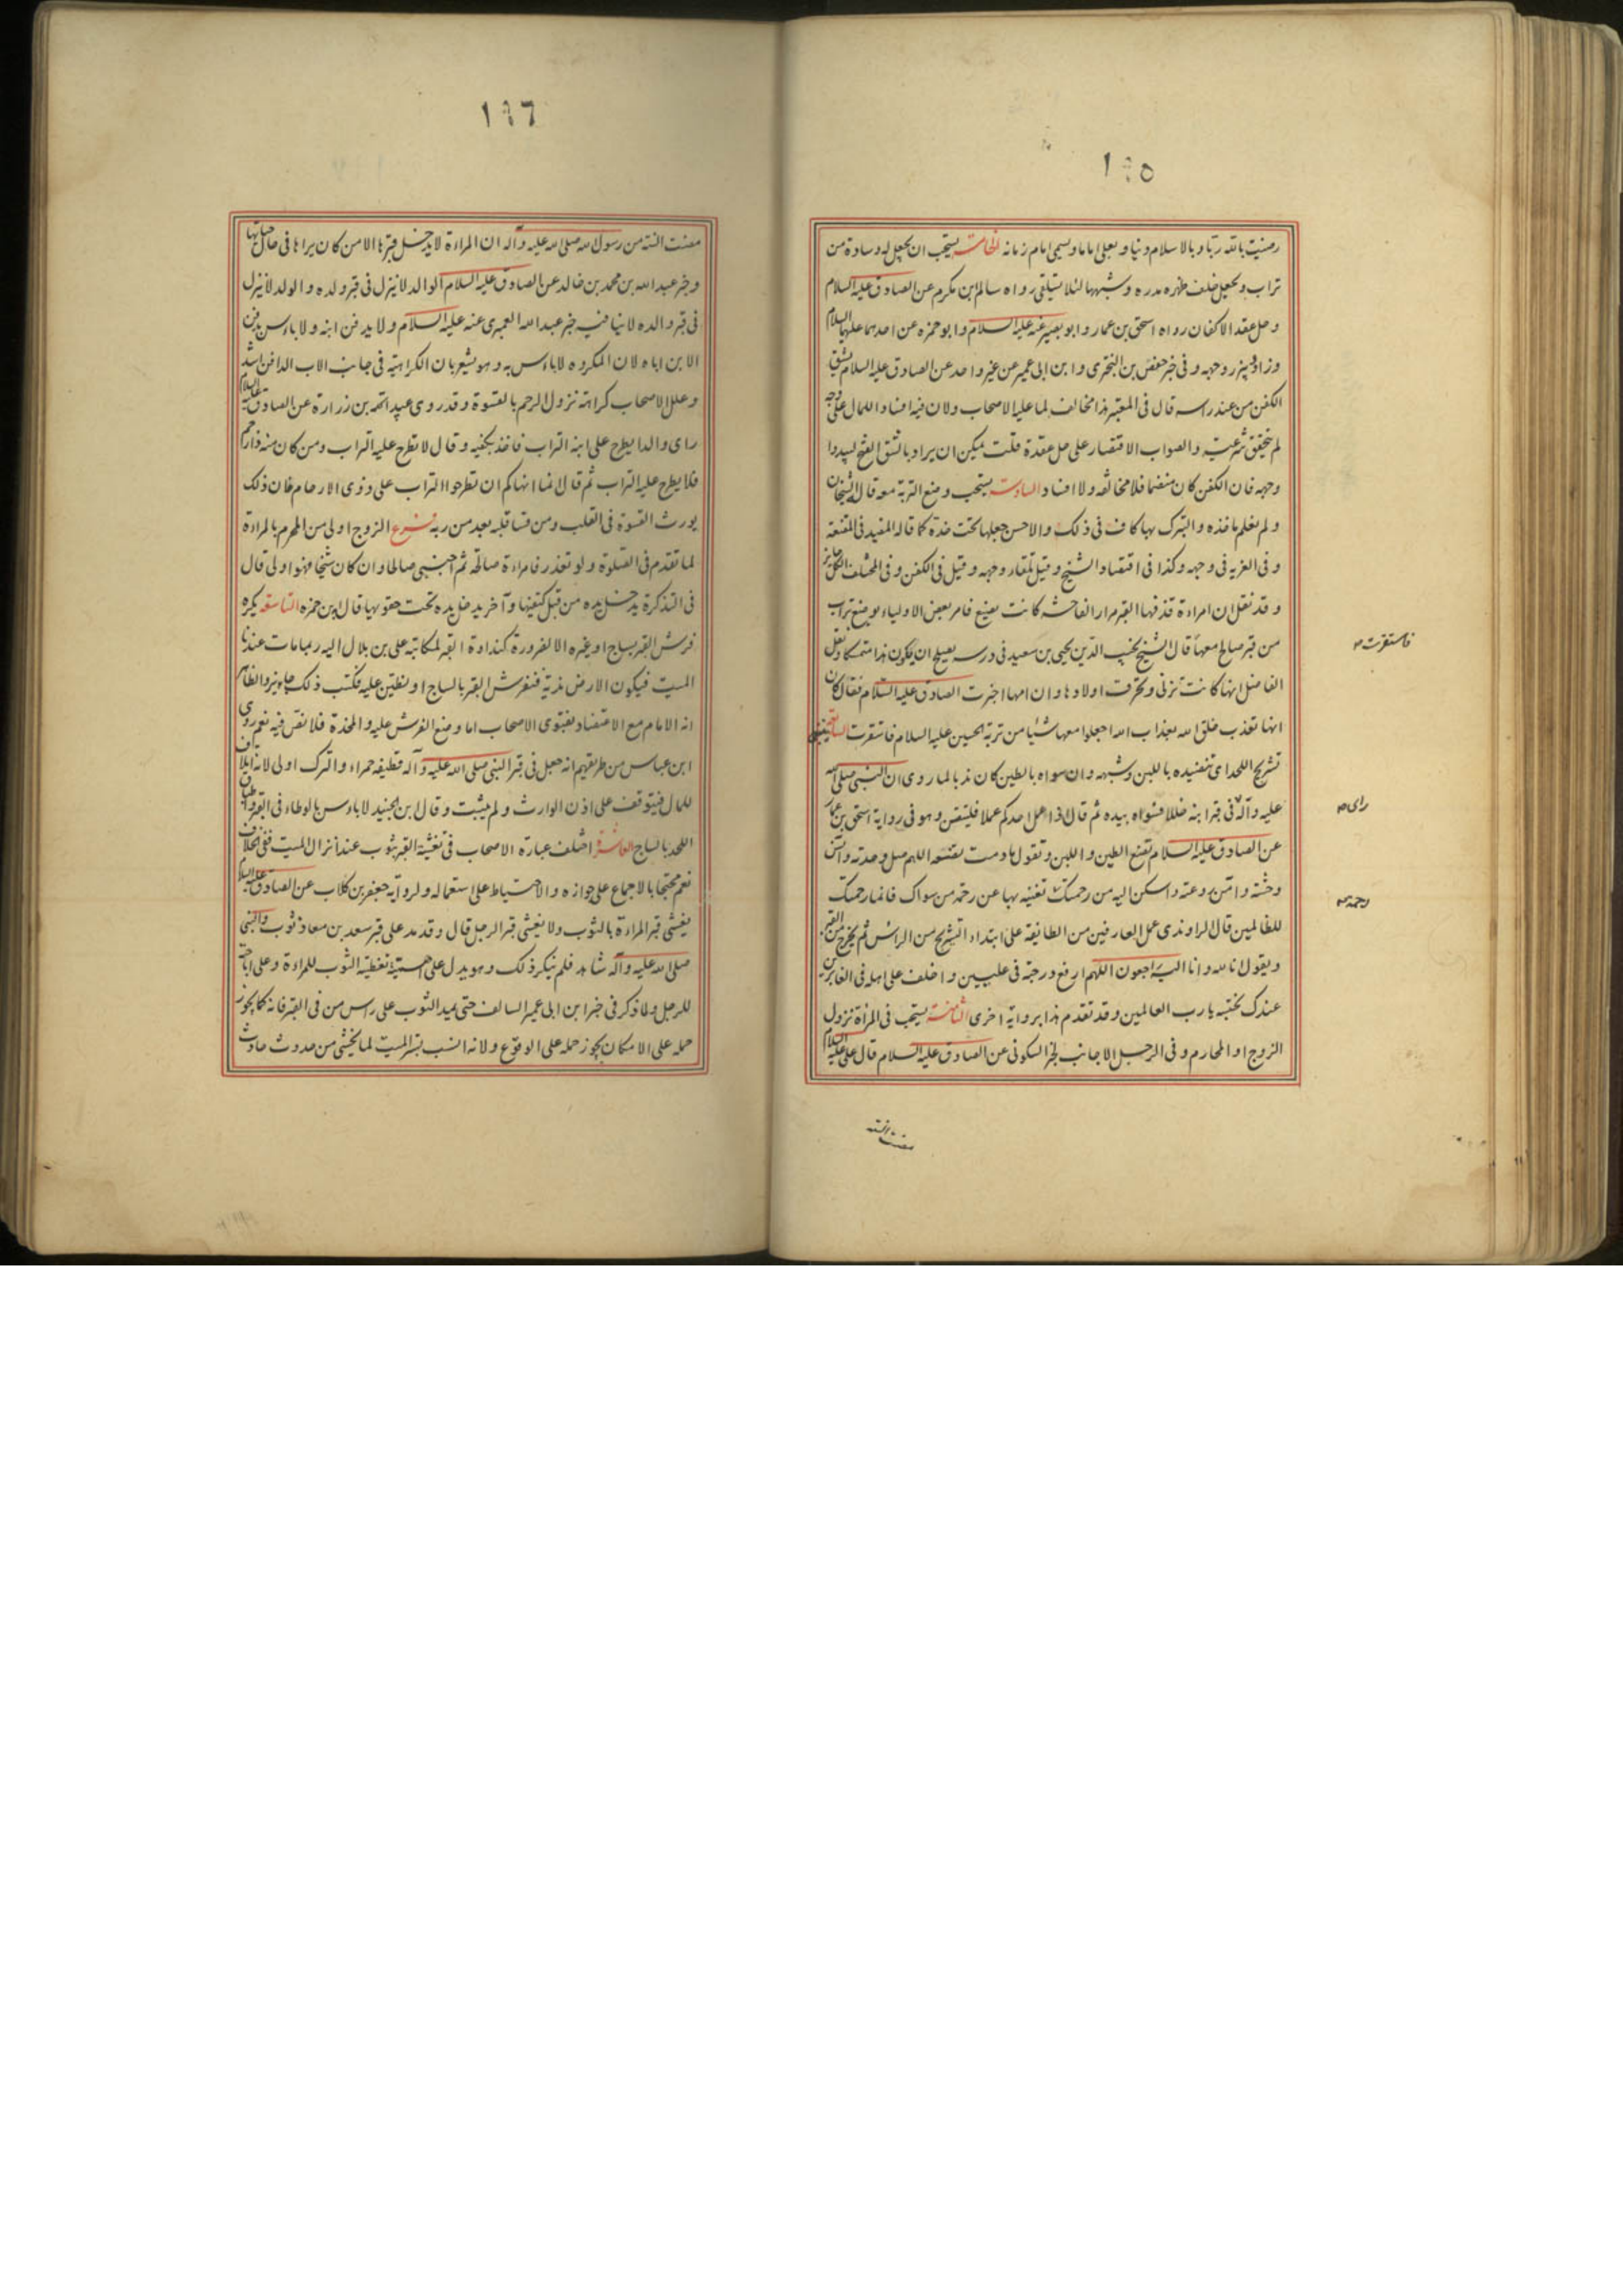 ١٦٥
رضيت بالله ربا وبالاسلام دينا وبعلي اماما ويسمي امام زمانه الخامسة يستحب ان يجعل له وسادة من
تراب ويجعل خلف ظهره مدره وشبهها لئلا يستلقي رواه سالم ابن مكرم عن الصادق عليه السلام
وحل عقد الاكفان رواه اسحق بن عمار وابو بصير عنه عليه السلام وابو حمزه عن احدهما عليهما السلام
وزاد ويبرز وجهه وفي خبر حفص بن البختري وابن ابي عمير عن غير واحد عن الصادق عليه السلام يشق
الكفن من عند راسه قال في المعتبر هذا مخالف لما عليه الاصحاب ولان فيه افساد اللمال على وجه
لم يتحقق شرعيته والصواب الاقتصار على حل عقدة قلت يمكن ان يراد بالشق الفتح ليبدوا
وجهه فان الكفن كان منضما فلا مخالفه ولا افساد السادسة يستحب وضع التربة معه قال الشيخان
ولم نعلم ماخذه والتبرك بها كاف في ذلك والاحسن جعلها تحت خدة كما قاله المفيد في المقنعه
وفي العزيه في وجهه وكذا في اقتصاد الشيخ وقيل تلقاء وجهه وقيل في الكفن وفي المختلف الكل جايز
وقد نقل ان امراءة قذفها القبر مرارا لفاحشة كانت تصنع فامر بعض الاولياء بوضع تراب
من قبر صالح معها قال الشيخ نجيب الدين يحيى بن سعيد في درسه يصلح ان يكون هذا متمسكا ونقل
الفاضل انها كانت تزني وتحرق اولادها وان امها اخبرت الصادق عليه السلام فقال كان
انها تعذب خلق الله بعذاب الله اجعلوا معها شيئا من تربة الحسين عليه السلام فاستقرت السابعة ينبغي
تشريج اللحد اي تنضيده باللبن وشبهه وان سواه بالطين كان ندبا لما روي ان النبي صلى الله
عليه وآله في قبر ابنه خللا فسواه بيده ثم قال اذا عمل احدكم عملا فليتقن وهو في رواية اسحق بن عمار
عن الصادق عليه السلام تضع الطين واللبن وتقول ما دمت تضعه اللهم صل وحدته وآنس
وحشته وامن روعته واسكن اليه من رحمتك تغنيه بها عن رحمة من سواك فانما رحمتك
للظالمين قال الراوندي عمل العارفين من الطائفة على ابتداء التشريج من الراس ثم يخرج من القبر
ويقول انا لله وانا اليه راجعون اللهم ارفع درجته في عليين واخلف على اهله في الغابرين
عندك نحتسبه يا رب العالمين وقد تقدم هذا برواية اخرى الثامنة يستحب في المراة نزول
الزوج او المحارم وفي الرجل الاجانب لخبر السكوني عن الصادق عليه السلام قال علي عليه السلام
فاستقرت
راى
رحمته
مضت السنة
١٦٦
مضت السنة من رسول الله صلى الله عليه وآله ان المراءة لا يدخل قبرها الا من كان يراها في حال حياتها
وخبر عبدالله بن محمد بن خالد عن الصادق عليه السلام الوالد لا ينزل في قبر ولده والولد لا ينزل
في قبر والده لا ينافيه خبر عبدالله العنبري عنه عليه السلام ولا يدفن ابنه ولا باءس بدفن
الابن اباه لان المكروه لا باءس به وهو يشعر بان الكراهية في جانب الاب الدافن اشد
وعلل الاصحاب كراهة نزول الرحم بالقسوة وقد روى عبيد الله بن زرارة عن الصادق عليه السلام
راى والدا يطرح على ابنه التراب فاخذ بكفيه وقال لا تطرح عليه التراب ومن كان منه ذا رحم
فلا يطرح عليه التراب ثم قال انما انهاكم ان تطرحوا التراب على ذوي الارحام فان ذلك
يورث القسوة في القلب ومن قسا قلبه بعد من ربه فرع الزوج اولى من المحرم بالمراءة
لما تقدم في الصلوة ولو تعذر فامراءة صالحة ثم اجنبي صالحا وان كان شيخا فهو اولى قال
في التذكرة يدخل يده من قبل كتفيها وآخر يدخل يده تحت حقويها قال ابن حمزه التاسعة يكره
فرش القبر بساج او غيره الا لضرورة كنداوة القبر لمكاتبة علي بن بلال اليه ربما مات عندنا
الميت فيكون الارض ندية فنفرش القبر بالساج او نطبق عليه فكتب ذلك جايز والظاهر
انه الامام مع الاعتضاد بفتوى الاصحاب اما وضع الفرش عليه والمخدة فلا نص فيه نعم روى
ابن عباس من طريقهم انه جعل في قبر النبي صلى الله عليه وآله قطيفه حمراء والترك اولى لانه اتلاف
للمال فيتوقف على اذن الوارث ولم يثبت وقال ابن الجنيد لا باءس بالوطاء في القبر واطباق
اللحد بالساج العاشرة اختلف عبارة الاصحاب في تغشية القبر بثوب عند انزال الميت ففي الخلاف
نعم محتجا بالاجماع على جوازه والاحتياط على استعماله ولرواية جعفر بن كلاب عن الصادق عليه السلام
يغشى قبر المراءة بالثوب ولا يغشى قبر الرجل قال وقد مد على قبر سعد بن معاذ ثوب والنبي
صلى الله عليه وآله شاهد فلم ينكر ذلك وهو يدل على حسنية تغطية الثوب للمراءة وعلى اباحته
للرجل ولما ذكر في خبر ابن ابي عمير السالف حتى يمد الثوب على راس من في القبر فانه كما يجوز
حمله على الامكان يجوز حمله على الوقوع ولانه انسب بستر الميت لما يخشى من حدوث حادث